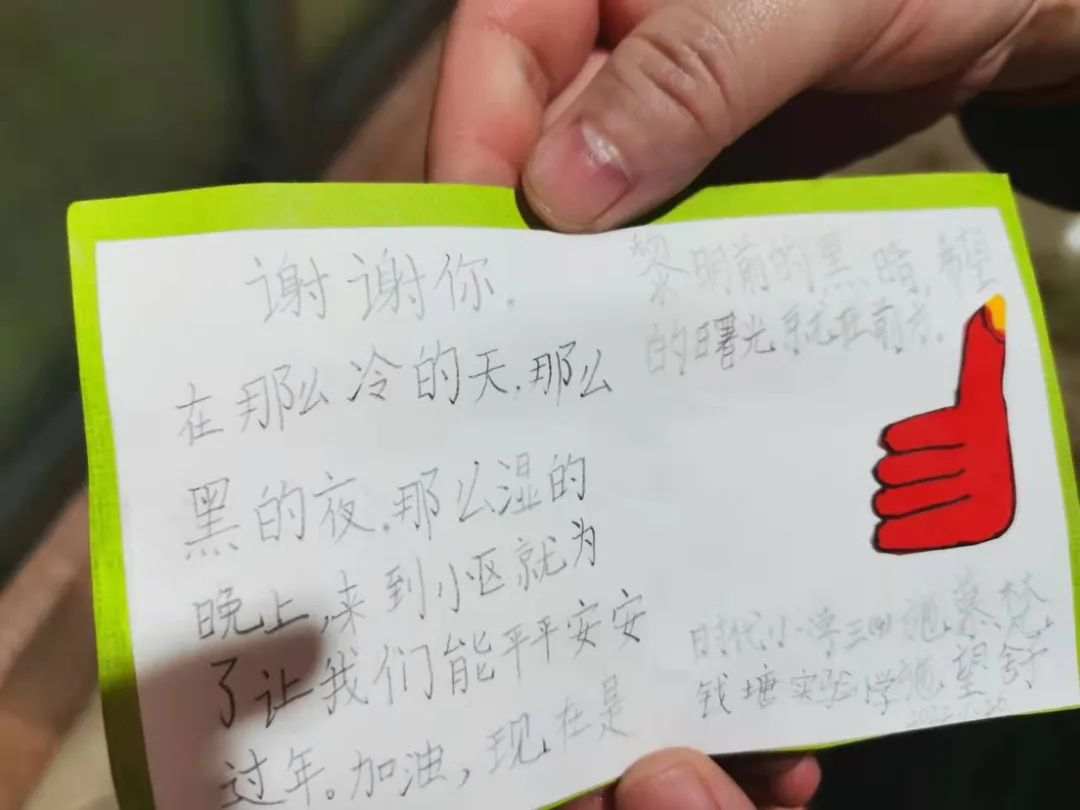 谢谢你。
在那么冷的天,那么
黑的夜,那么湿的
晚上,来到小区就为
了让我们能平平安安
过年。加油,现在是
黎明前的黑暗,希望
的曙光就在前方。
时代小学三四施慕梵
钱塘实验学施望舒